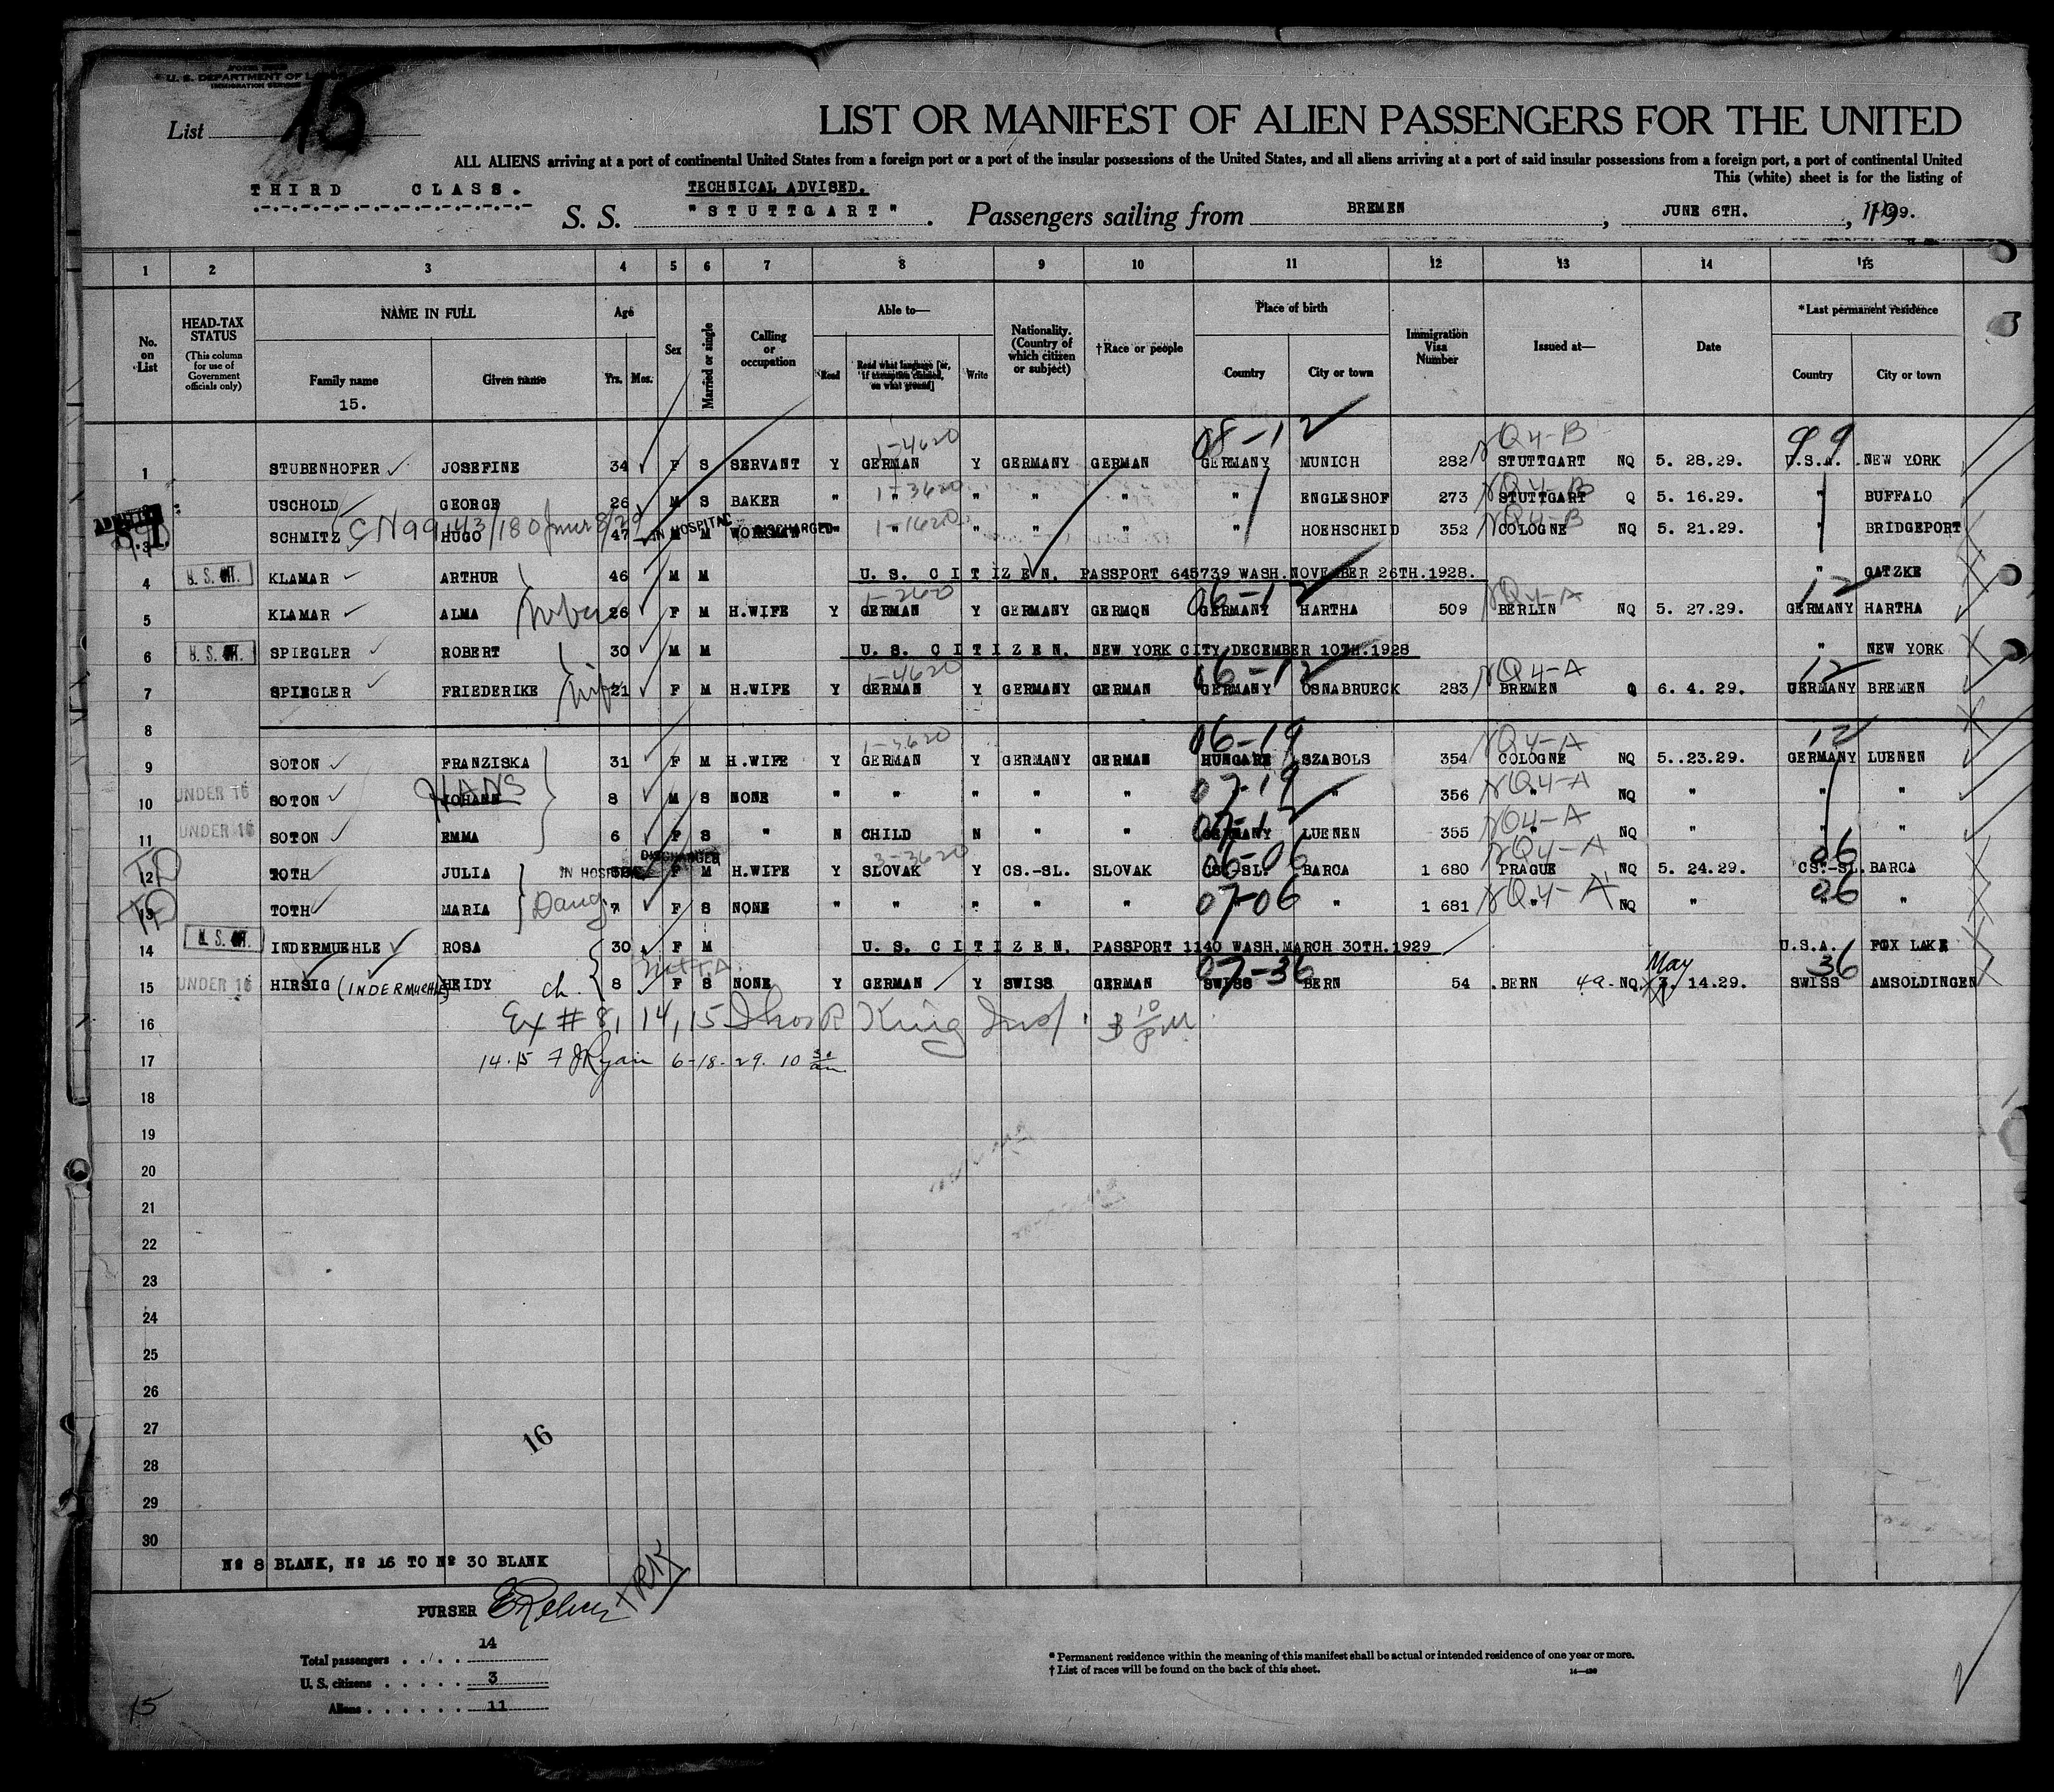 U. S. DEPARTMENT OF
IMMIGRATION SERVICE
List 15
LIST OR MANIFEST OF ALIEN PASSENGERS FOR THE UNITED
ALL ALIENS arriving at a port of continental United States from a foreign port or a port of the insular possessions of the United States, and all aliens arriving at a port of said insular possessions from a foreign port, a port of continental United
This (white) sheet is for the listing of
THIRD CLASS.
TECHNICAL ADVISED.
S. S. "STUTTGART". Passengers sailing from BREMEN, JUNE 6TH., 1929.
1 2 3 4 5 6 7 8 9 10 11 12 13 14 15
No. on List
HEAD-TAX STATUS (This column for use of Government officials only)
NAME IN FULL
Family name
Given name
15.
Age
Yrs. Mos.
Sex
Married or single
Calling or occupation
Able to—
Read
Read what language [or, if exemption claimed, on what ground]
Write
Nationality. (Country of which citizen or subject)
†Race or people
Place of birth
Country
City or town
Immigration Visa Number
Issued at—
Date
*Last permanent residence
Country
City or town
1-4620 08-12 NQ4-B 99
1 STUBENHOFER JOSEFINE 34 F S SERVANT Y GERMAN Y GERMANY GERMAN GERMANY MUNICH 282 STUTTGART NQ 5. 28.29. U.S.A. NEW YORK
1-3620 NQ4-B
USCHOLD GEORGE 26 M S BAKER " " " " " " ENGLESHOF 273 STUTTGART Q 5. 16.29. " BUFFALO
ADMITTED S.I. 1-1620 NQ4-B
3 SCHMITZ HUGO 47 IN HOSPITAL M M WORKMAN DISCHARGED " " " " " " HOEHSCHEID 352 COLOGNE NQ 5. 21.29. " BRIDGEPORT
4 U. S. CIT. KLAMAR ARTHUR 46 M M U. S. CITIZEN. PASSPORT 645739 WASH. NOVEMBER 26TH.1928. " GATZKE
1-2620 06-12 NQ4-A 12
5 KLAMAR ALMA 26 F M H.WIFE Y GERMAN Y GERMANY GERMQN GERMANY HARTHA 509 BERLIN NQ 5. 27.29. GERMANY HARTHA
6 U. S. CIT. SPIEGLER ROBERT 30 M M U. S. CITIZEN. NEW YORK CITY DECEMBER 10TH.1928 " NEW YORK
1-4620 06-12 NQ4-A 12
7 SPIEGLER FRIEDERIKE wife 21 F M H.WIFE Y GERMAN Y GERMANY GERMAN GERMANY OSNABRUECK 283 BREMEN Q 6. 4. 29. GERMANY BREMEN
8
06-19 NQ4-A 12
9 SOTON FRANZISKA 31 F M H.WIFE Y GERMAN Y GERMANY GERMAN HUNGARY SZABOLS 354 COLOGNE NQ 5..23.29. GERMANY LUENEN
HANS 07-19 NQ4-A
10 UNDER 16 SOTON JOHANN 8 M S NONE " " " " " " 356 " NQ " " "
07-12 NQ4-A
11 UNDER 16 SOTON EMMA 6 F S " N CHILD N " " GERMANY LUENEN 355 " NQ " " "
DISCHARGED 3-3620 06-06 NQ4-A 06
12 TOTH JULIA IN HOSPITAL F M H.WIFE Y SLOVAK Y CS.-SL. SLOVAK CS.-SL. BARCA 1 680 PRAGUE NQ 5. 24.29. CS.-SL. BARCA
07-06 NQ4-A 06
13 TOTH MARIA Daug 7 F S NONE " " " " " " 1 681 " NQ " " "
14 U. S. CIT. INDERMUEHLE ROSA 30 F M U. S. CITIZEN. PASSPORT 1140 WASH.MARCH 30TH.1929 U.S.A. FOX LAKE
07-36 May 36
15 UNDER 16 HIRSIG (INDERMUEHLE) HEIDY ch. 8 F S NONE Y GERMAN Y SWISS GERMAN SWISS BERN 54 .BERN 4a- NQ 14.29. SWISS AMSOLDINGEN
16 Ex # 8, 14, 15 King
17 14.15 F J Ryan 6-18-29. 10 30 am
18
19
20
21
22
23
24
25
26
27
16
28
29
30
Nº 8 BLANK, Nº 16 TO Nº 30 BLANK
PURSER
Total passengers 14
U. S. citizens 3
Aliens 11
* Permanent residence within the meaning of this manifest shall be actual or intended residence of one year or more.
† List of races will be found on the back of this sheet.
15